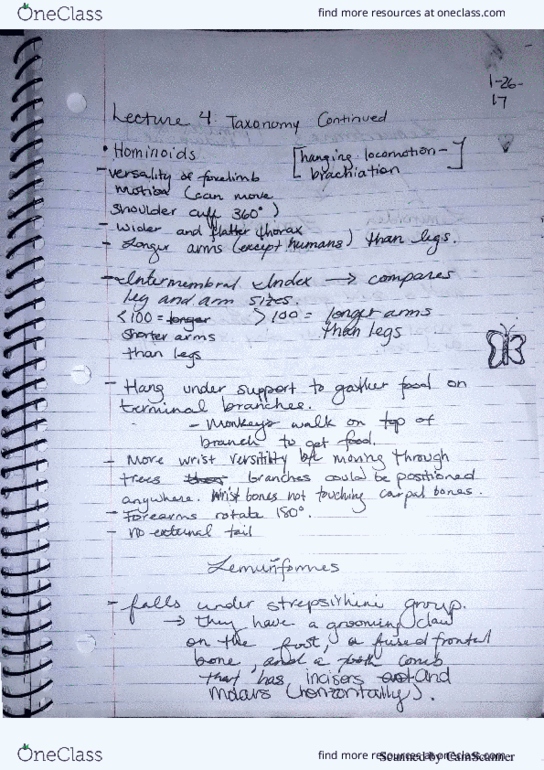 OneClass
find more resources at oneclass.com
1-26-
17
Lecture 4: Taxonomy Continued
• Hominoids
[hanging locomotion -
brachiation]
- versality of forelimb
motion (can move
shoulder cuff 360°)
- wider and flatter thorax
- Longer arms (except humans) than legs.
- Intermembral Index → compares
leg and arm sizes.
<100 = longer
shorter arms
than legs
>100 = longer arms
than legs
- Hang under support to gather food on
terminal branches.
- Monkeys walk on top of
branch to get food.
- More wrist versitility b/c moving through
trees branches could be positioned
anywhere. Wrist bones not touching carpal bones.
- Forearms rotate 180°.
- no external tail
Lemuriformes
- falls under strepsirhini group.
→ they have a grooming claw
on the foot, a fused frontal
bone, and a tooth comb
that has incisors and
molars (horizontally).
OneClass
find more resources at oneclass.com
Scanned by CamScanner